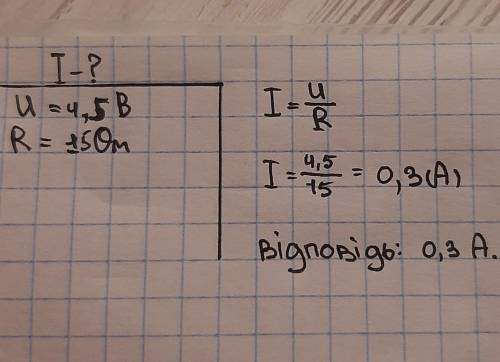 I - ?
U = 4,5 В
R = 15 Ом
I = U/R
I = 4,5/15 = 0,3(А)
Відповідь: 0,3 А.